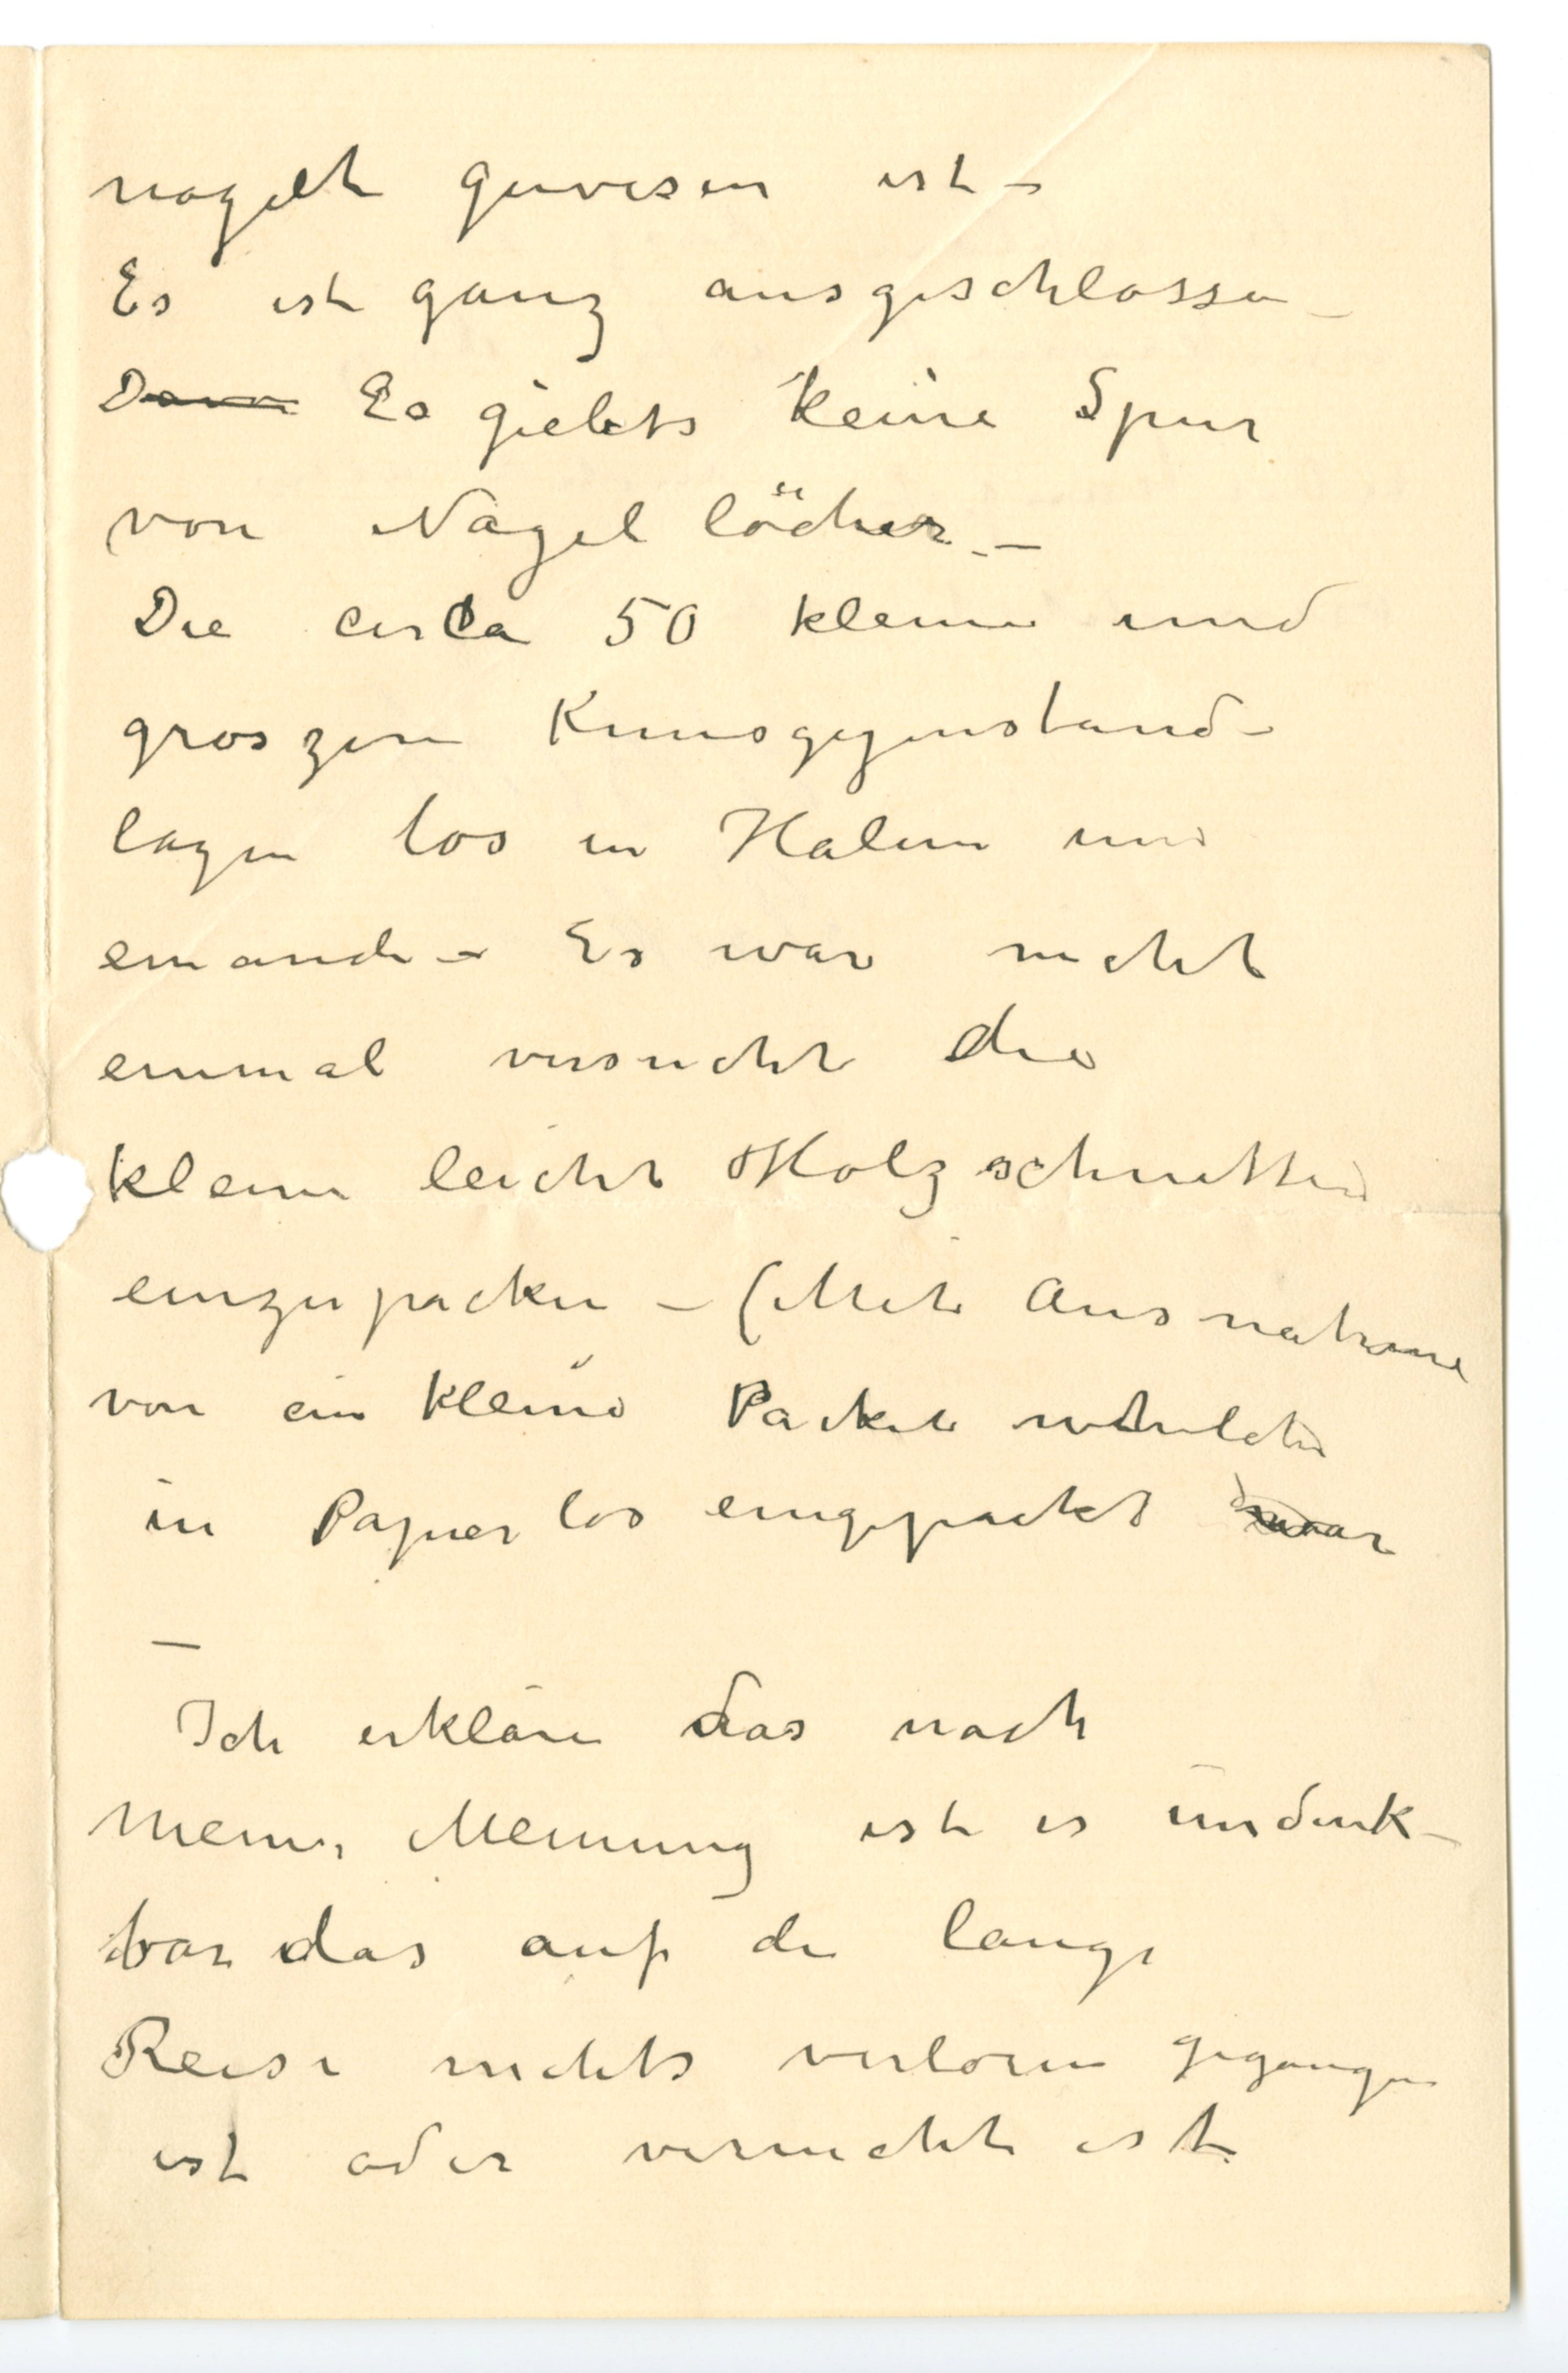 nagelt gewesen ist –
Es ist ganz ausgeschlossen –
Davon Es giebts keine Spur
von Nagel löcher. –
Die circa 50 kleine und
groszen Kunsgegenstand –
lagen los in Halem und
einande – Es war nicht
einmal versucht die
kleine leicht Holzschnitten
einzupacken – (Mit Ausnahme
von ein kleine Packet
in Papier los eingepackt war
–
Ich erkläre das nach
meiner Meinung ist es undenk-
bar das auf de lange
Reise nichts verloren gegangen
ist oder vernicht ist